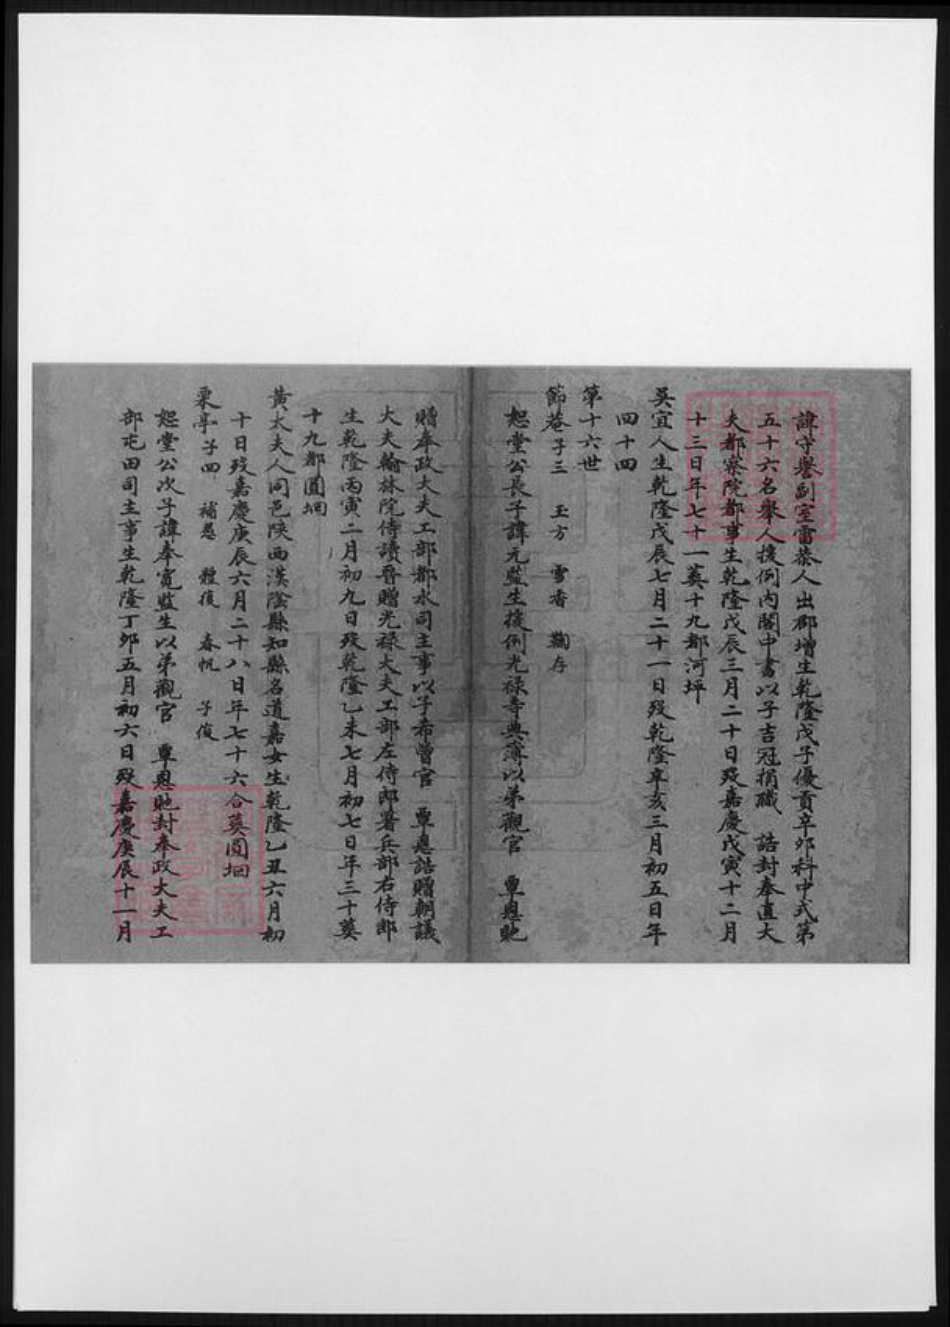 諱守譽副室雷恭人出郡增生乾隆戊子優貢辛夘科中式第
五十六名舉人援例内閣中書以子吉冠捐職　誥封奉直大
夫都察院都事生乾隆戊辰三月二十日歿嘉慶戊寅十二月
十三日年七十一葬十九都河坪
吳宜人生乾隆戊辰七月二十一日歿乾隆辛亥三月初五日年
四十四
第十六世
節菴子三　玉方　雪香　鞠存
恕堂公長子諱元監生援例光祿寺典簿以弟觀官　覃恩貤
贈奉政大夫工部都水司主事以子希曾官　覃恩誥贈朝議
大夫翰林院侍讀晉贈光禄大夫工部左侍郎署兵部右侍郎
生乾隆丙寅二月初九日歿乾隆乙未七月初七日年三十葬
十九都圓垇
黃太夫人同邑陝西漢陰縣知縣名道嘉女生乾隆乙丑六月初
十日歿嘉慶庚辰六月二十八日年七十六合葬圓垇
栗亭子四　補愚　㽔復　春帆　子俊
恕堂公次子諱奉寬監生以弟觀官　覃恩貤封奉政大夫工
部屯田司主事生乾隆丁夘五月初六日歿嘉慶庚辰十一月